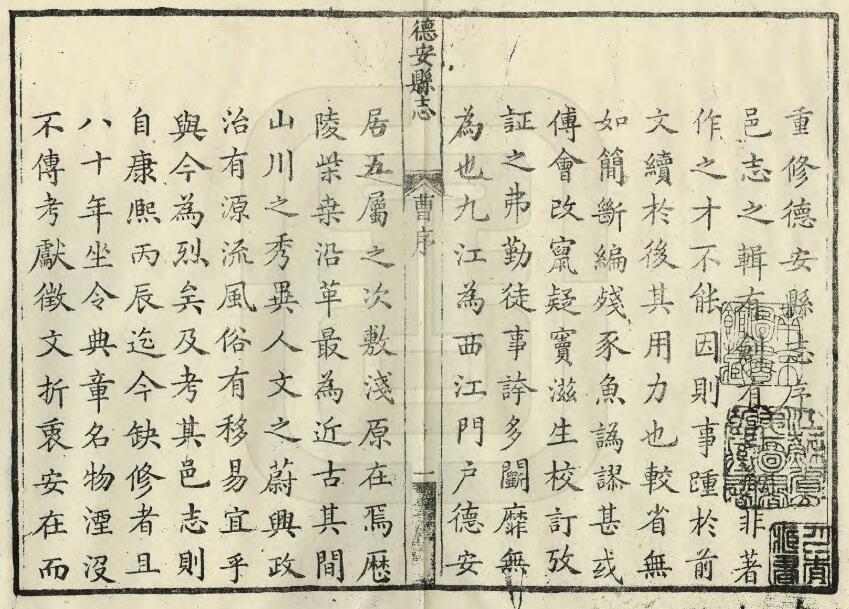 重修德安縣志序
邑志之輯有創有非著
作之才不能因則事踵於前
文續於後其用力也較省無
如簡斷編殘豕魚譌謬甚或
傅會改竄疑竇滋生校訂攷
証之弗勤徒事誇多鬭靡無
為也九江為西江門户德安
德安縣志
曹序
一
居五屬之次敷淺原在焉歷
陵柴桑沿革最為近古其間
山川之秀異人文之蔚興政
治有源流風俗有移易宜乎
與今為烈矣及考其邑志則
自康熙丙辰迄今缺修者且
八十年坐令典章名物湮沒
不傳考獻徵文折衷安在而